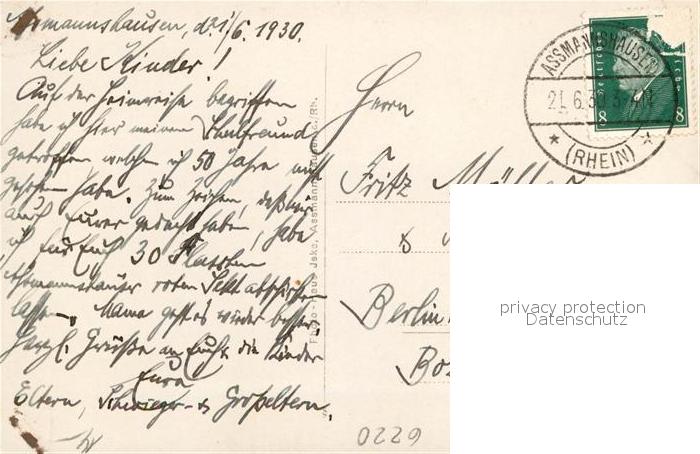 Assmannshausen, d. 21/6. 1930.
Liebe Kinder!
Auf der Heimreise begriffen
habe ich hier meinen Schulfreund
getroffen welchen ich 50 Jahre nicht
gesehen habe. Zum Zeichen, daß wir
auch Eurer gedacht haben, habe
ich für Euch 30 Flaschen
Assmannshäuser roten Sekt abschicken
lassen. Mama geht es wieder besser.
Herzl. Grüße an Euch, die Kinder
Eure
Eltern, Schwieger- & Großeltern.
Photo-Haus Jske, Assmannshausen a./Rh.
Herrn
Fritz Müller
&
Berlin
ASSMANNSHAUSEN
21.6.30
(RHEIN)
8 8
0229
privacy protection
Datenschutz